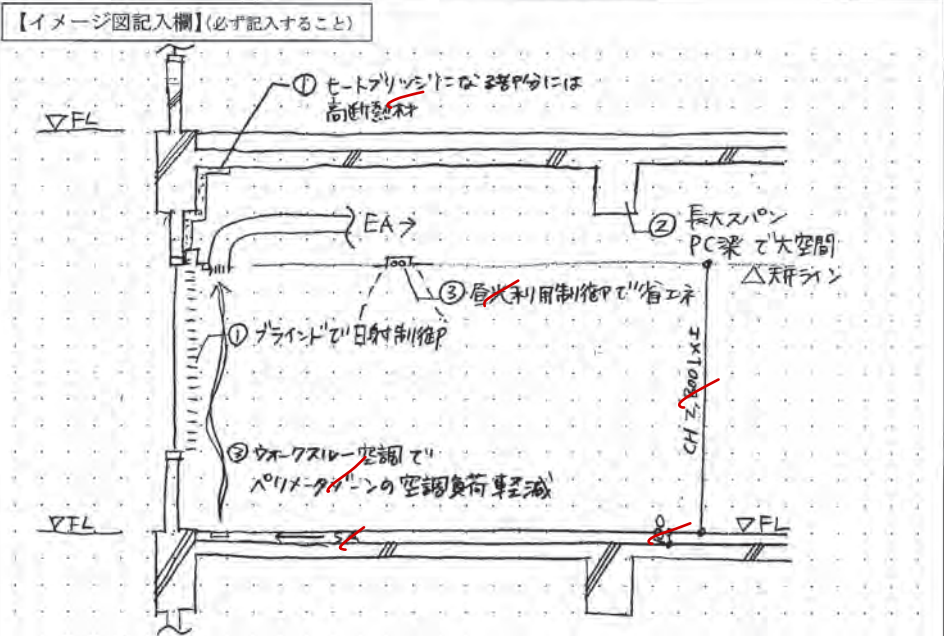 【イメージ図記入欄】(必ず記入すること)
① ヒートブリッジになる部分には
高断熱材
▽FL
EA→
② 長大スパン
PC梁で大空間
△天井ライン
③ 昼光利用制御で省エネ
① ブラインドで日射制御
③ ウォークスルー空調で
ペリメータゾーンの空調負荷軽減
▽FL
SA
▽FL